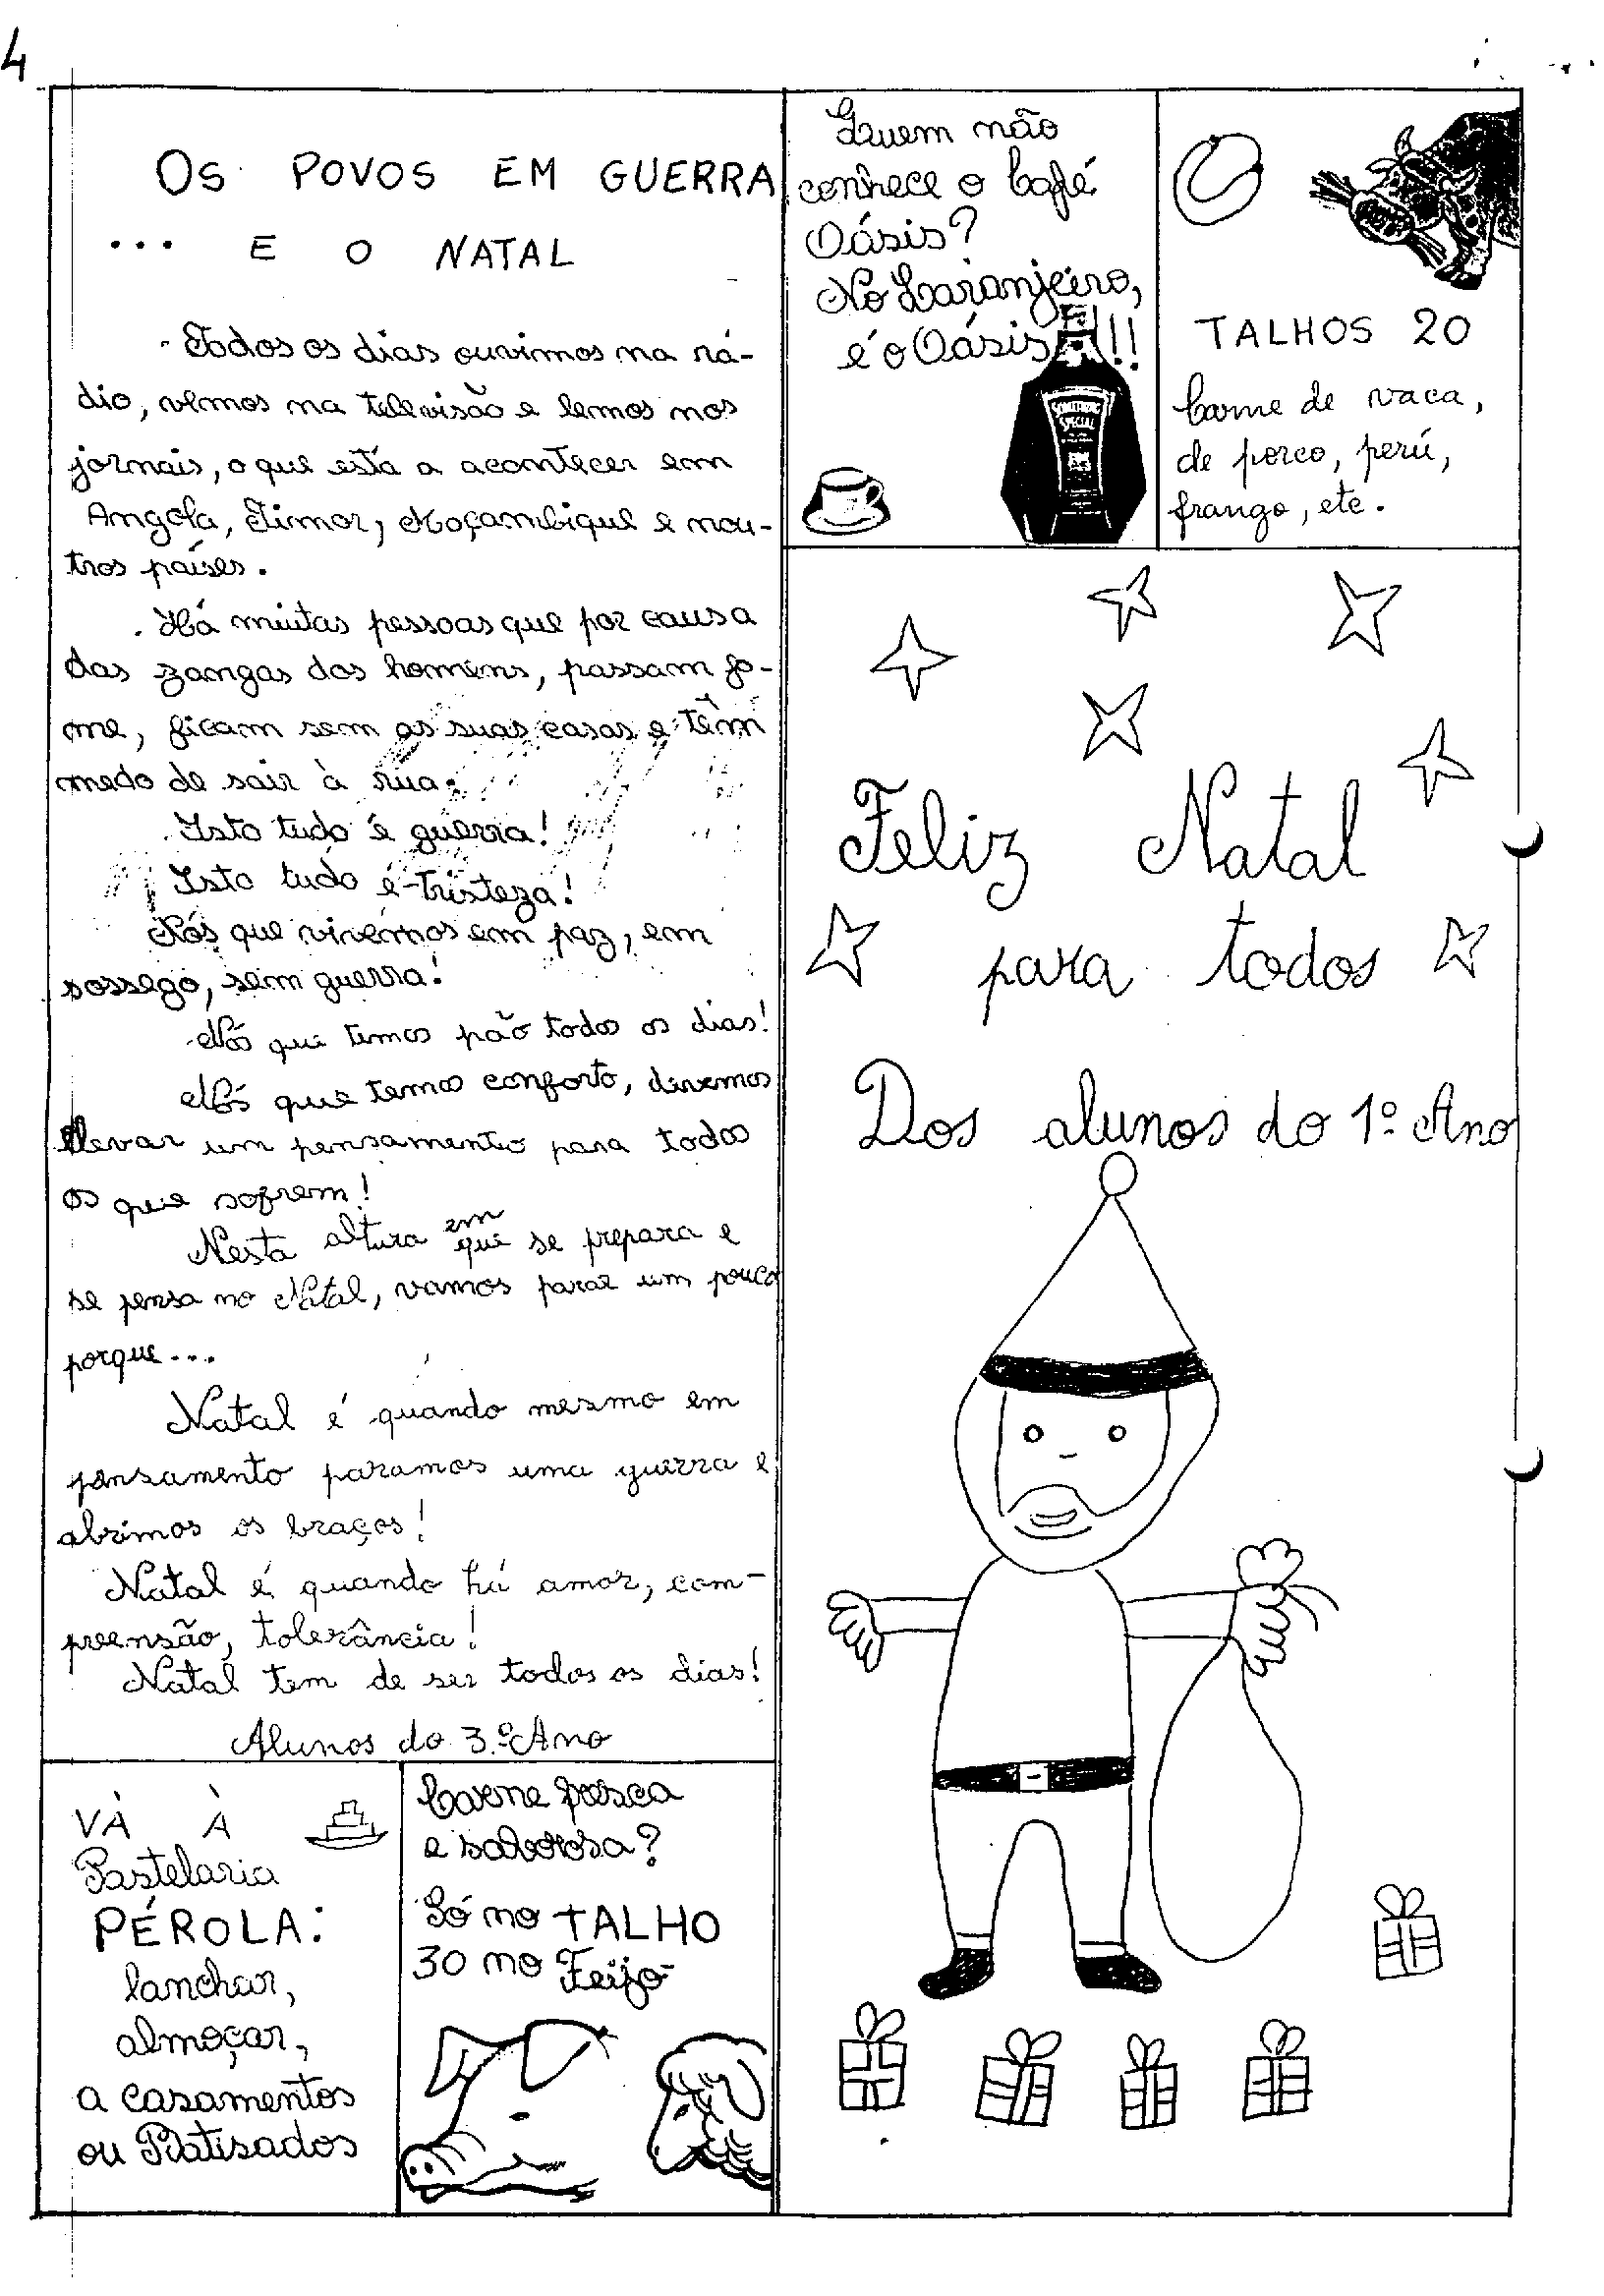 4
OS POVOS EM GUERRA
... E O NATAL
Todos os dias ouvimos na rá-
dio, vemos na televisão e lemos nos
jornais, o que está a acontecer em
Angola, Timor, Moçambique e nou-
tros países.
Há muitas pessoas que por causa
das zangas dos homens, passam fo-
me, ficam sem as suas casas e têm
medo de sair à rua.
Isto tudo é guerra!
Isto tudo é tristeza!
Nós que vivemos em paz, em
sossego, sem guerra!
Nós que temos pão todos os dias!
Nós que temos conforto, devemos
levar um pensamento para todos
os que sofrem!
Nesta altura em que se prepara e
se pensa no Natal, vamos parar um pouco
porque...
Natal é quando mesmo em
pensamento paramos uma guerra e
abrimos os braços!
Natal é quando há amor, com-
preensão, tolerância!
Natal tem de ser todos os dias!
Alunos do 3.º Ano
VÁ À
Pastelaria
PÉROLA:
lanchar,
almoçar,
a casamentos
ou Batisados
Carne fresca
e saborosa?
Só no TALHO
30 no Feijó
Quem não
conhece o Café
Oásis?
No Laranjeiro,
é o Oásis!!!
SOMETHING
SPECIAL
TALHOS 20
Carne de vaca,
de porco, perú,
frango, etc.
Feliz Natal
para todos
Dos alunos do 1º Ano